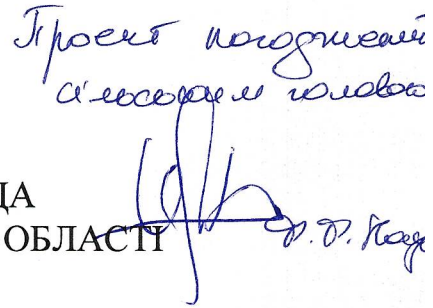 Проект погоджений
сільським головою
ДА
ОБЛАСТІ